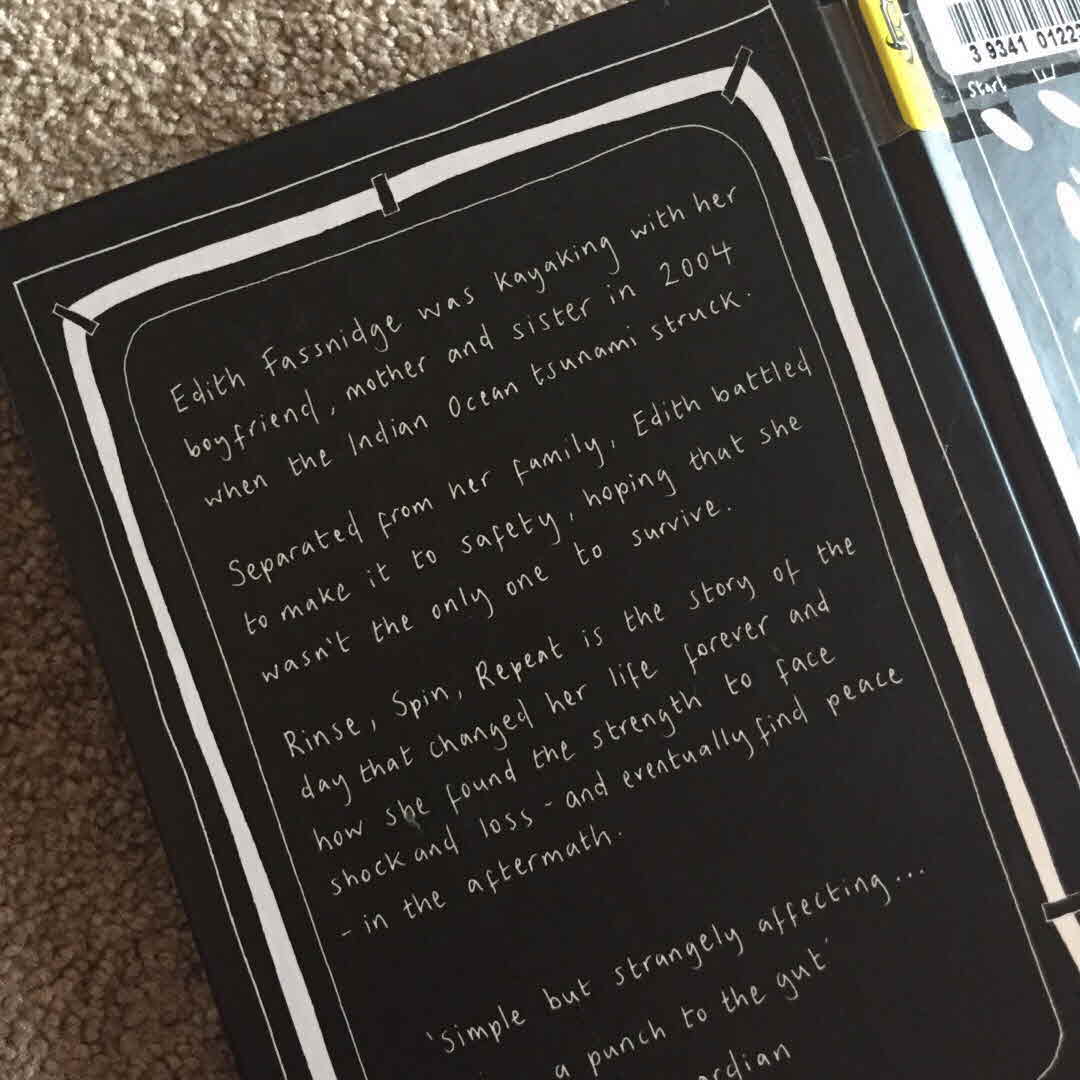 3 9341 0122
Start
Edith Fassnidge was kayaking with her
boyfriend, mother and sister in 2004
when the Indian Ocean tsunami struck.
Separated from her family, Edith battled
to make it to safety, hoping that she
wasn't the only one to survive.
Rinse, Spin, Repeat is the story of the
day that changed her life forever and
how she found the strength to face
shock and loss - and eventually find peace
- in the aftermath.
'Simple but strangely affecting...
a punch to the gut'
ardian